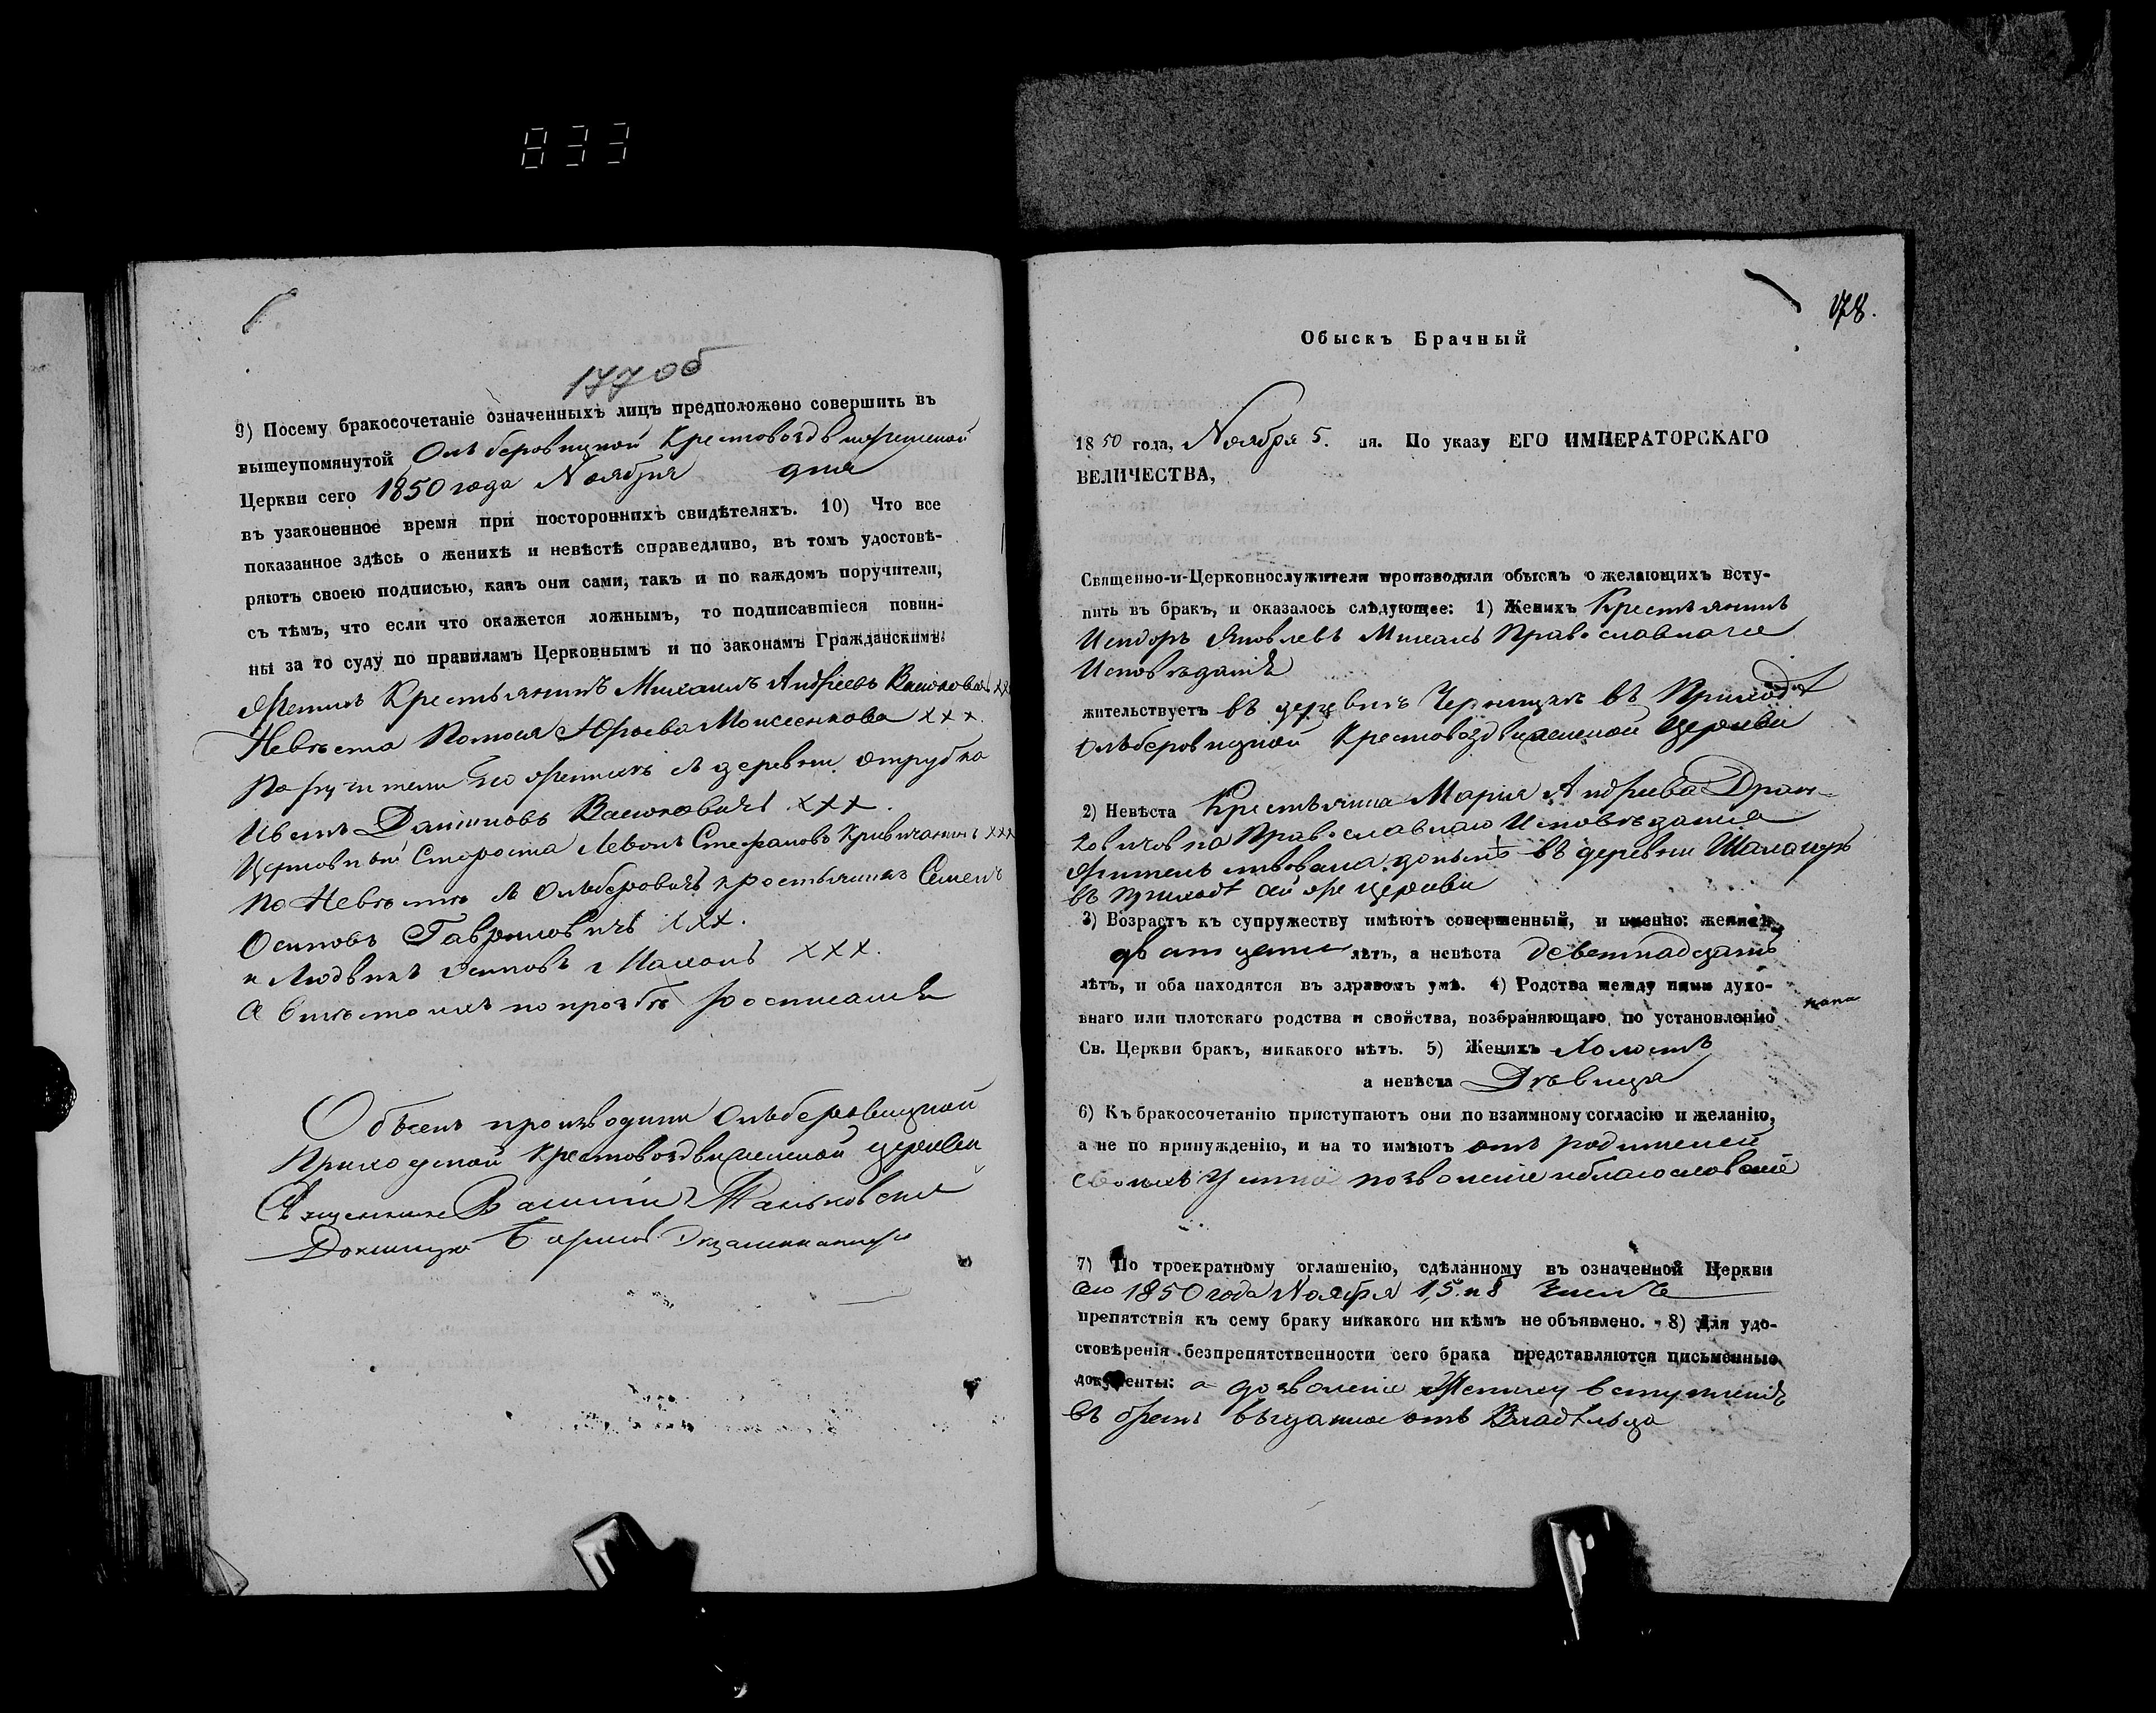 833
177 об
9) Посему бракосочетаніе означенныхъ лицъ предположено совершить въ
вышеупомянутой Ольберовицкой Крестовоздвиженской
Церкви сего 1850 года Ноября дня
въ узаконенное время при постороннихъ свидѣтеляхъ. 10) Что все
показанное здѣсь о женихѣ и невѣстѣ справедливо, въ томъ удостовѣ-
ряютъ своею подписью, какъ они сами, такъ и по каждомъ поручители,
съ тѣмъ, что если что окажется ложнымъ, то подписавшіеся повин-
ны за то суду по правиламъ Церковнымъ и по законамъ Гражданскимъ:
Женихъ Крестьянинъ Михаилъ Андреевъ xxx
Невѣста Юрьева Моисеенкова xxx.
Поручители по женихѣ деревни
Даниловъ xxx.
Церковный Староста Левонъ Стефановъ xxx
По Невѣстѣ крестьянинъ Семенъ
Осиповъ Гавриловичъ xxx.
и Людвикъ Осиповъ xxx.
А вмѣсто ихъ по прозбѣ росписался
Обыскъ производили Ольберовицкой
Приходской Крестовоздвиженской церкви
Священникъ
Обыскъ Брачный
178.
1850 года, Ноября 5. ня. По указу ЕГО ИМПЕРАТОРСКАГО
ВЕЛИЧЕСТВА,
Священно-и-Церковнослужители производили обыскъ о желающихъ всту-
пить въ бракъ, и оказалось слѣдующее: 1) Женихъ Крестьянинъ
Исидоръ Яковлевъ Православнаго
Исповѣданія
жительствуетъ въ деревнѣ въ Приходѣ
Ольберовицкой Крестовоздвиженской Церкви
2) Невѣста Крестьянка Мария Андреева
Православнаго Исповѣдания
жительствовала донынѣ въ деревни
въ Приходѣ той же церкви
3) Возрастъ къ супружеству имѣютъ совершенный, и именно: женихъ
двадцати лѣтъ, а невѣста деветнадцать
лѣтъ, и оба находятся въ здравомъ умѣ. 4) Родства между ними духо-
внаго или плотскаго родства и свойства, возбраняющаго по установленію
Св. Церкви бракъ, никакого нѣтъ. 5) Женихъ Холостъ
а невѣста Дѣвица
6) Къ бракосочетанію приступаютъ они по взаимному согласію и желанію,
а не по принужденію, и на то имѣютъ отъ родителей
своихъ позволеніе и благословеніе
7) По троекратному оглашенію, сдѣланному въ означенной Церкви
сего 1850 года Ноября 1, 5. и 8 числъ
препятствія къ сему браку никакого ни кѣмъ не объявлено. 8) Для удо-
стовѣренія безпрепятственности сего брака представляются письменные
документы: а дозволеніе Жениху
въ бракъ выданное отъ Владѣльца